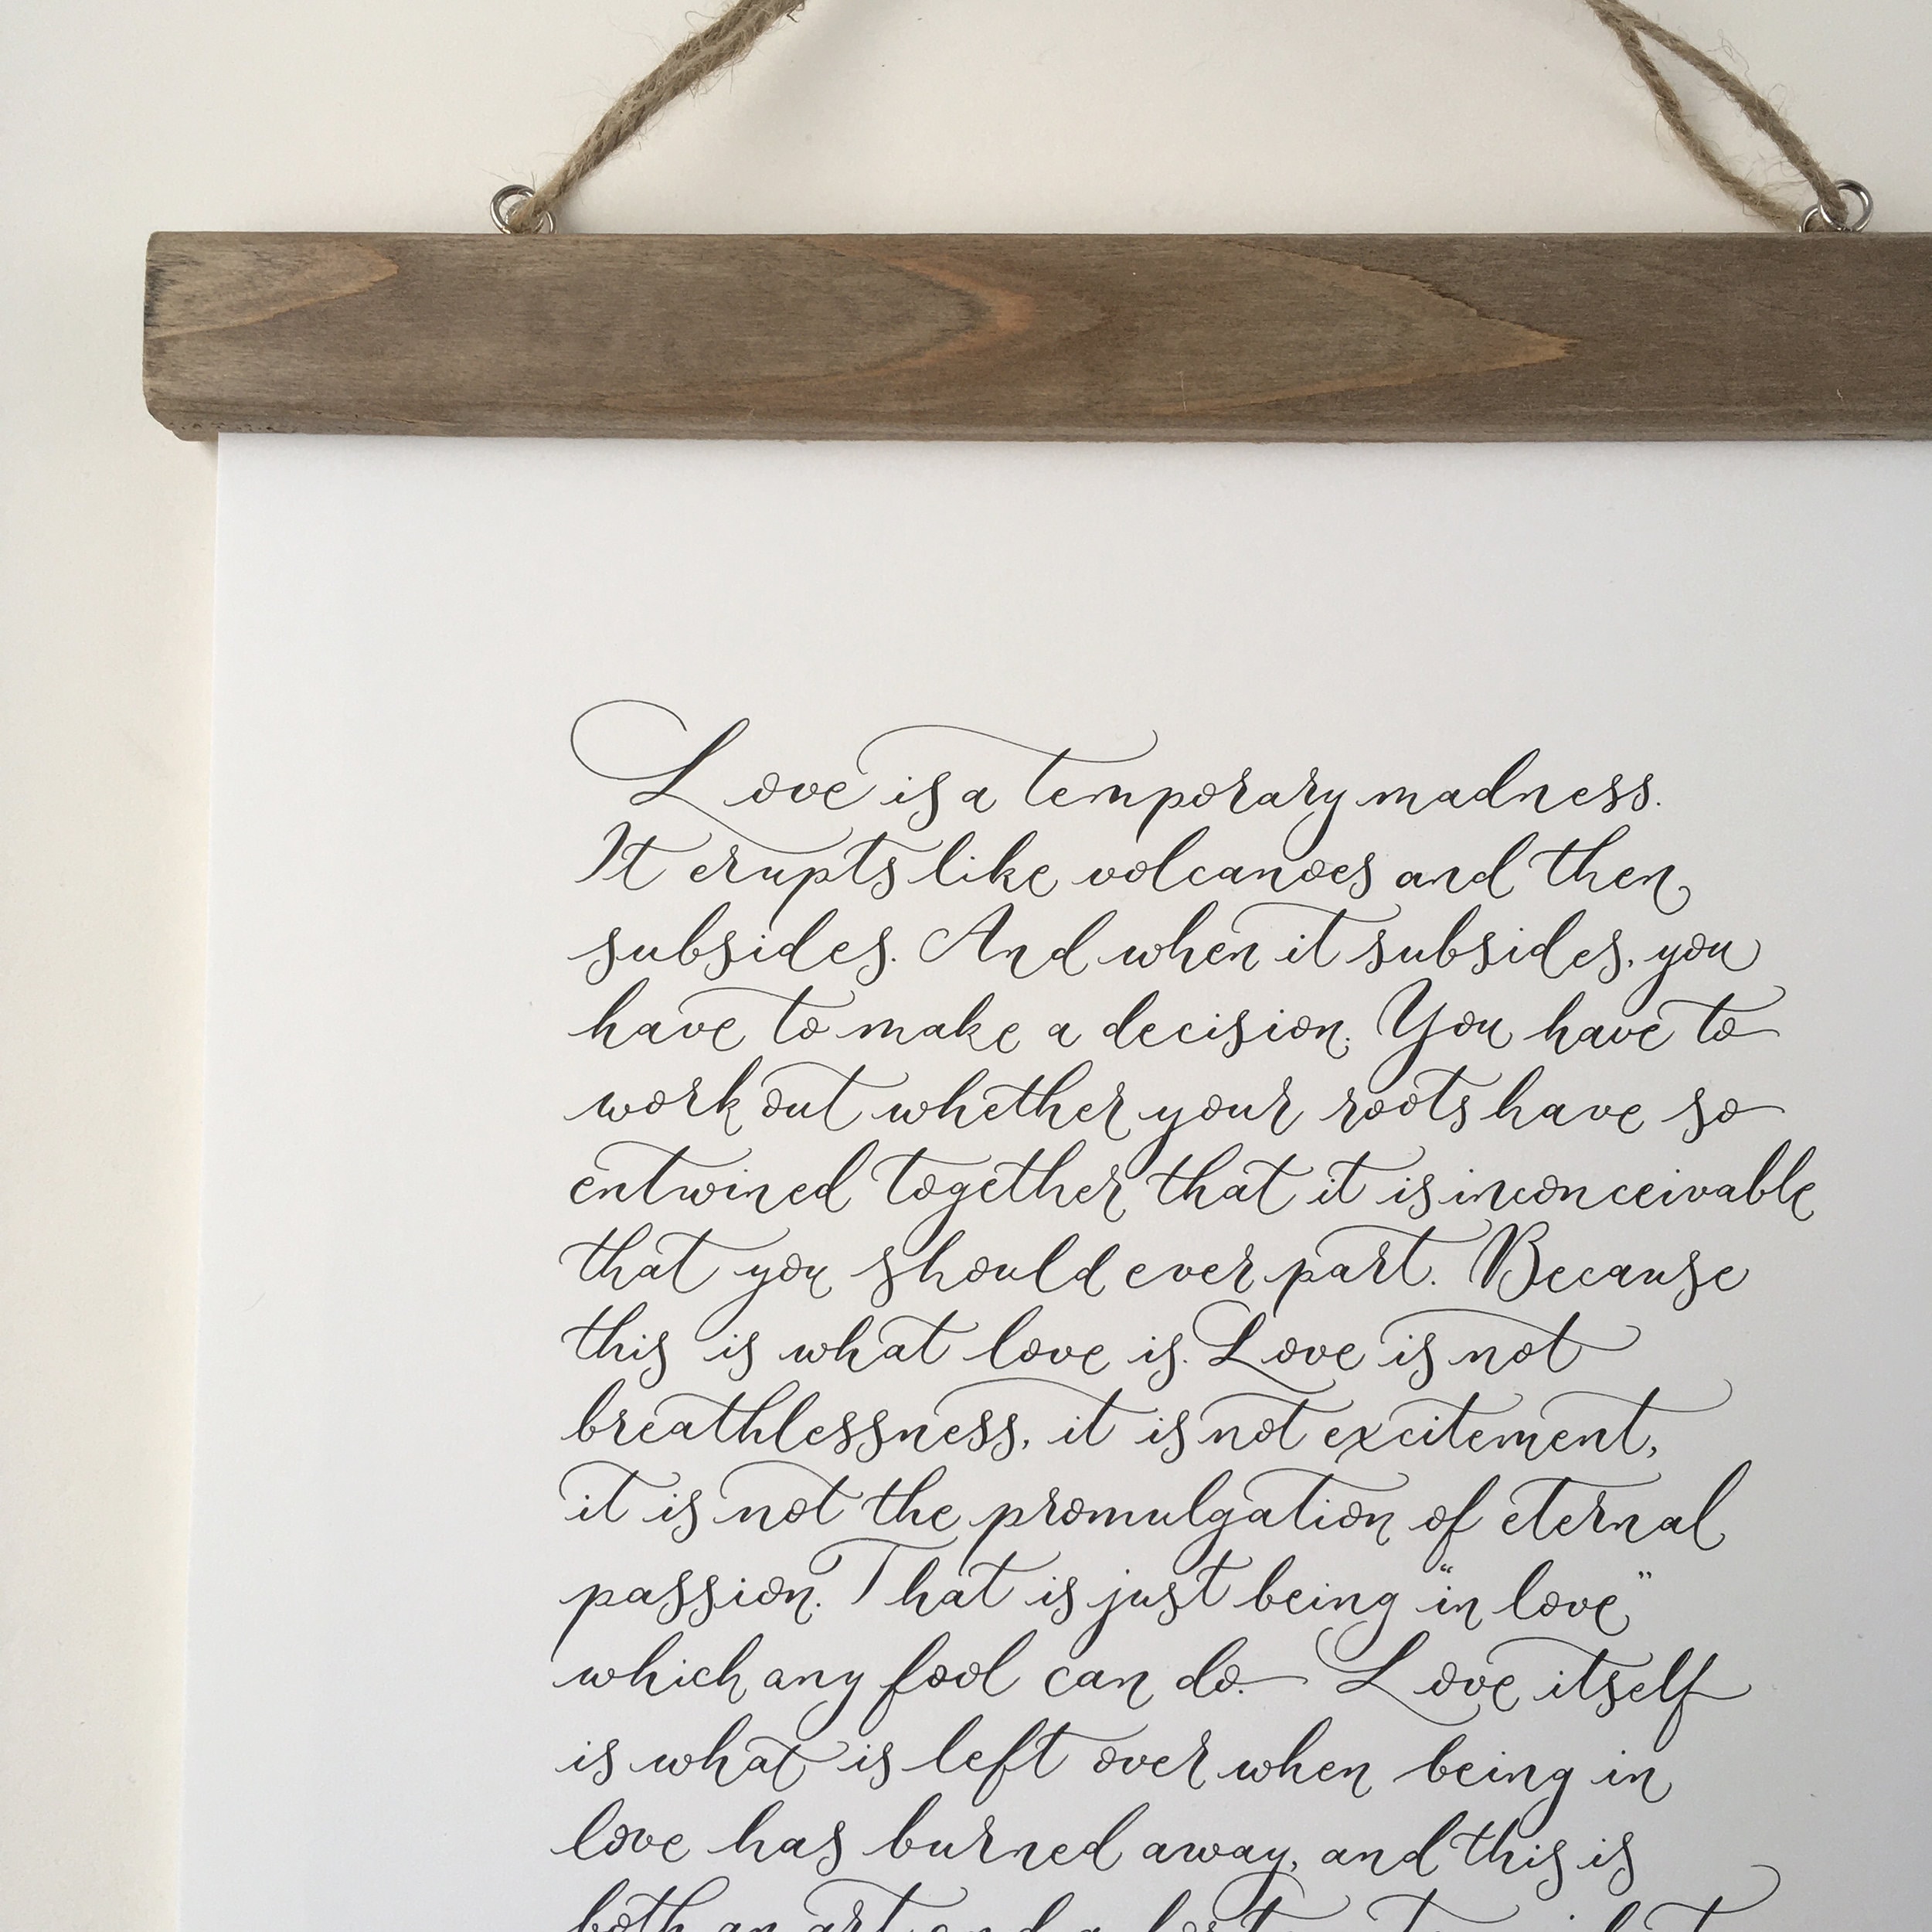 Love is a temporary madness.
It erupts like volcanoes and then
subsides. And when it subsides, you
have to make a decision. You have to
work out whether your roots have so
entwined together that it is inconceivable
that you should ever part. Because
this is what love is. Love is not
breathlessness, it is not excitement,
it is not the promulgation of eternal
passion. That is just being "in love"
which any fool can do. Love itself
is what is left over when being in
love has burned away, and this is
both an art and a